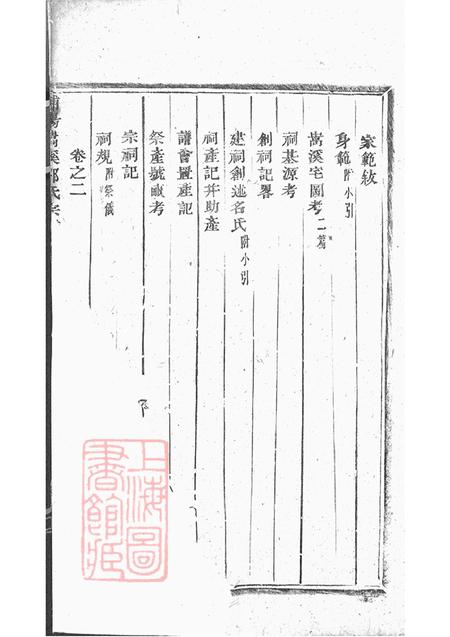 家範敘
身範附小引
嵩溪宅圖考二篇
祠基源考
創祠記畧
建祠創述名氏附小引
祠產記并助產
譜會置產記
祭產號畝考
宗祠記
祠規附祭儀
卷之二
上海圖書館藏